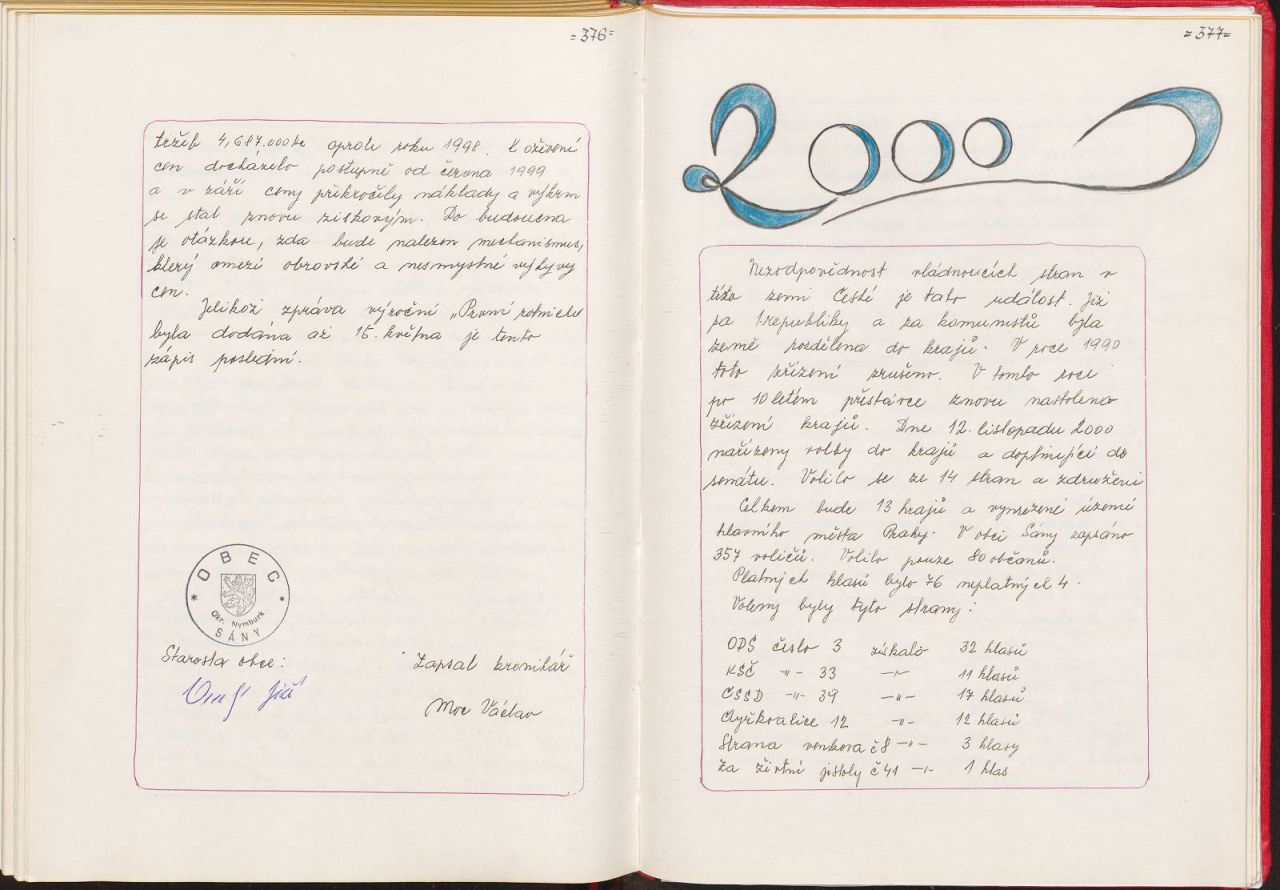 =376=
tržeb 4,687.000 kč oproti roku 1998. K oživení
cen docházelo postupně od června 1999
a v září ceny překročily náklady a výkrm
se stal znovu ziskovým. Do budoucna
je otázkou, zda bude nalezen mechanismus,
který omezí obrovské a nesmyslné výkyvy
cen.
Jelikož zpráva výroční „První rolnické
byla dodána až 15. května je tento
zápis poslední.
OBEC
Okr. Nymburk
SÁNY
Starosta obce:
Zapsal kronikář
Moc Václav
=377=
2000
Nezodpovědnost vládnoucích stran v
této zemi České je tato událost. Již
za 1 republiky a za komunistů byla
země rozdělena do krajů. V roce 1990
toto zřízení zrušeno. V tomto roce
po 10 letém přestávce znovu nastoleno
zřízení krajů. Dne 12. listopadu 2000
nařízeny volby do krajů a doplňující do
senátu. Volilo se ze 14 stran a združení
Celkem bude 13 krajů a vymezené území
hlavního města Prahy. V obci Sány zapsáno
357 voličů. Volilo pouze 80 občanů.
Platných hlasů bylo 76 neplatných 4.
Voleny byly tyto strany:
ODS číslo 3 získalo 32 hlasů
KSČ -"- 33 -"- 11 hlasů
ČSSD -"- 39 -"- 17 hlasů
čtyřkoalice 12 -"- 12 hlasů
Strana venkova č 8 -"- 3 hlasy
Za životní jistoty č 41 -"- 1 hlas